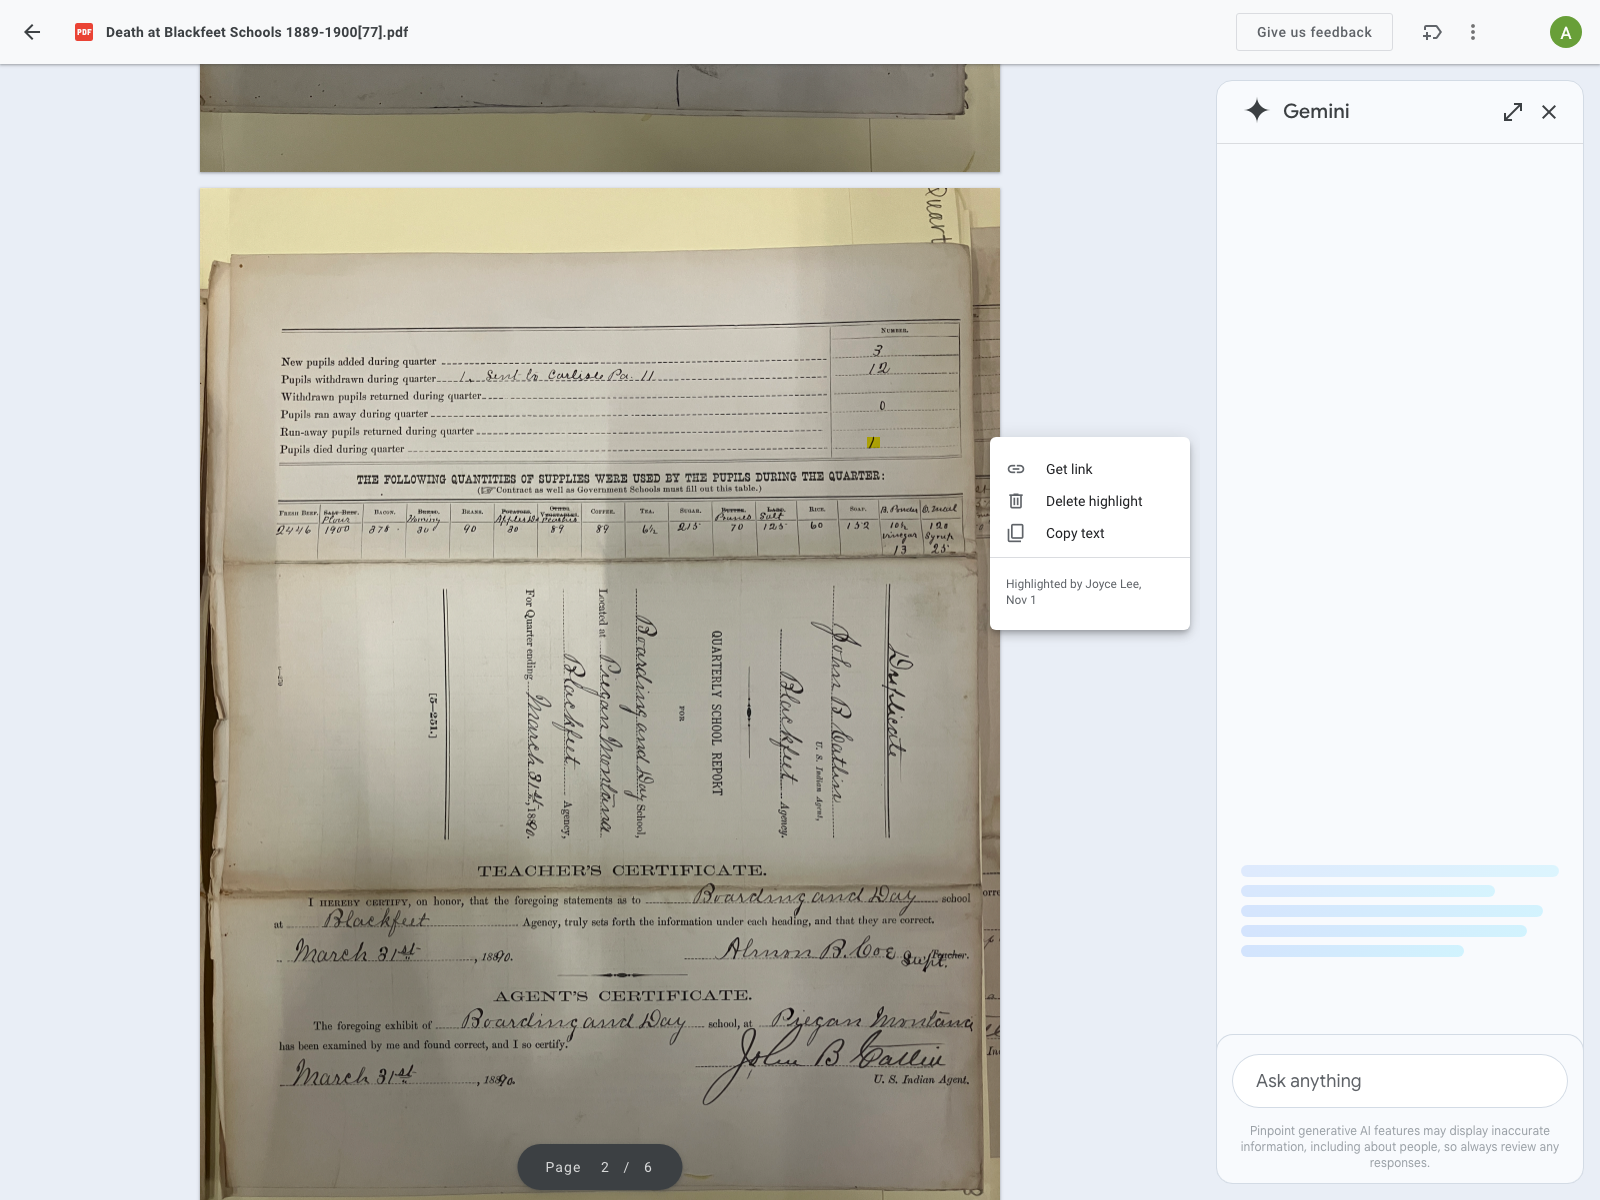 Death at Blackfeet Schools 1889-1900[77].pdf
Give us feedback
A
Gemini
Quart
NUMBER.
New pupils added during quarter 3
Pupils withdrawn during quarter 1. Sent to Carlisle Pa. 11 12
Withdrawn pupils returned during quarter
Pupils ran away during quarter 0
Run-away pupils returned during quarter
Pupils died during quarter 1
THE FOLLOWING QUANTITIES OF SUPPLIES WERE USED BY THE PUPILS DURING THE QUARTER:
(Contract as well as Government Schools must fill out this table.)
FRESH BEEF. Flour BACON. Hominy BEANS. COFFEE. TEA. SUGAR. Prunes Salt RICE. SOAP. B. Powder O. Meal
2446 1900 378 30 90 30 89 89 6½ 215 70 125 60 132 10½ 120
vinegar Syrup
13 25
Duplicate
John B Catlin
U. S. Indian Agent,
Blackfeet Agency.
QUARTERLY SCHOOL REPORT
FOR
Boarding and Day School,
Located at Piegan Montana
Blackfeet Agency,
For Quarter ending March 31st, 1890.
[5—251.]
TEACHER'S CERTIFICATE.
I HEREBY CERTIFY, on honor, that the foregoing statements as to Boarding and Day school
at Blackfeet Agency, truly sets forth the information under each heading, and that they are correct.
March 31st, 1890. Almon B. Coe Supt. Teacher.
AGENT'S CERTIFICATE.
The foregoing exhibit of Boarding and Day school, at Piegan Montana
has been examined by me and found correct, and I so certify.
John B Catlin
March 31st, 1890. U. S. Indian Agent.
Get link
Delete highlight
Copy text
Highlighted by Joyce Lee,
Nov 1
Page 2 / 6
Ask anything
Pinpoint generative AI features may display inaccurate
information, including about people, so always review any
responses.